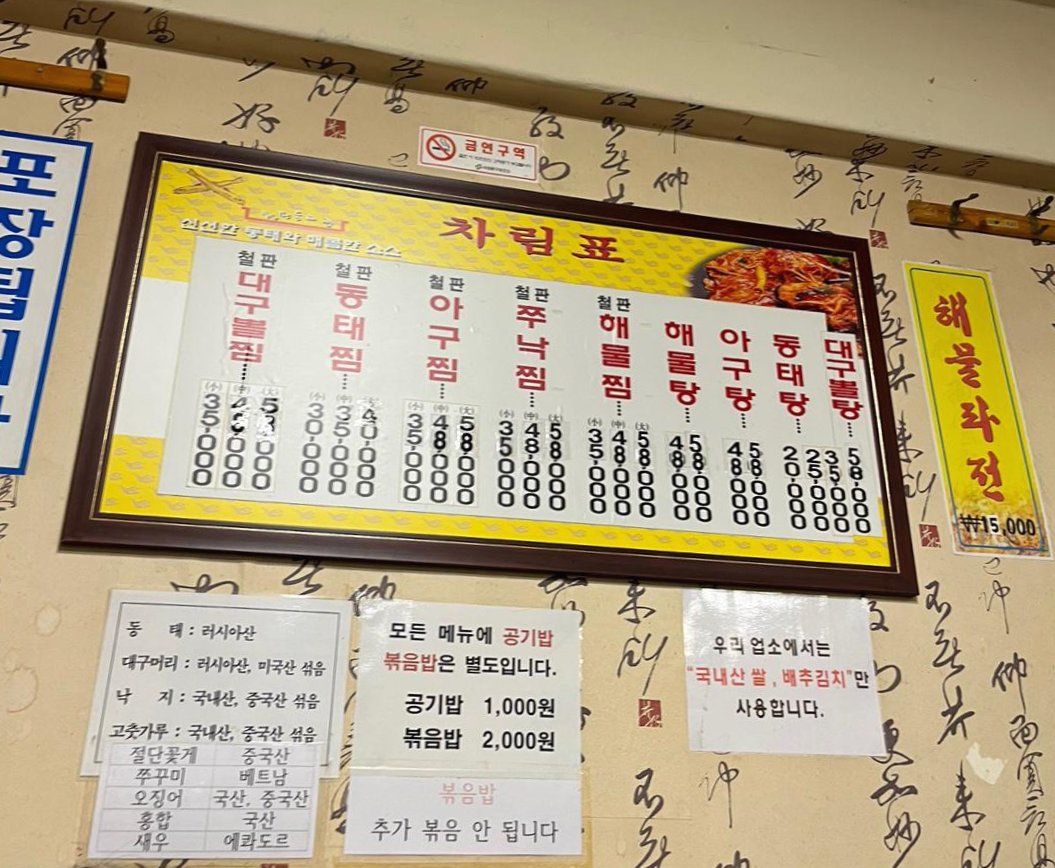 금연구역
포장됩니다
차림표
신선한 동태와 매콤한 소스
철판
대구뽈찜
(小) 35,000
(中) 48,000
(大) 58,000
철판
동태찜
30,000
35,000
40,000
철판
아구찜
(小) 35,000
(中) 48,000
(大) 58,000
철판
쭈낙찜
(小) 35,000
(中) 48,000
(大) 58,000
철판
해물찜
(小) 35,000
(中) 48,000
(大) 58,000
해물탕
48,000
58,000
아구탕
48,000
58,000
동태탕
20,000
25,000
대구뽈탕
35,000
58,000
해물파전
₩15,000
동 태 : 러시아산
대구머리 : 러시아산, 미국산 섞음
낙 지 : 국내산, 중국산 섞음
고춧가루 : 국내산, 중국산 섞음
절단꽃게 중국산
쭈꾸미 베트남
오징어 국산, 중국산
홍합 국산
새우 에콰도르
모든 메뉴에 공기밥
볶음밥은 별도입니다.
공기밥 1,000원
볶음밥 2,000원
볶음밥
추가 볶음 안 됩니다
우리 업소에서는
"국내산 쌀 , 배추김치"만
사용합니다.